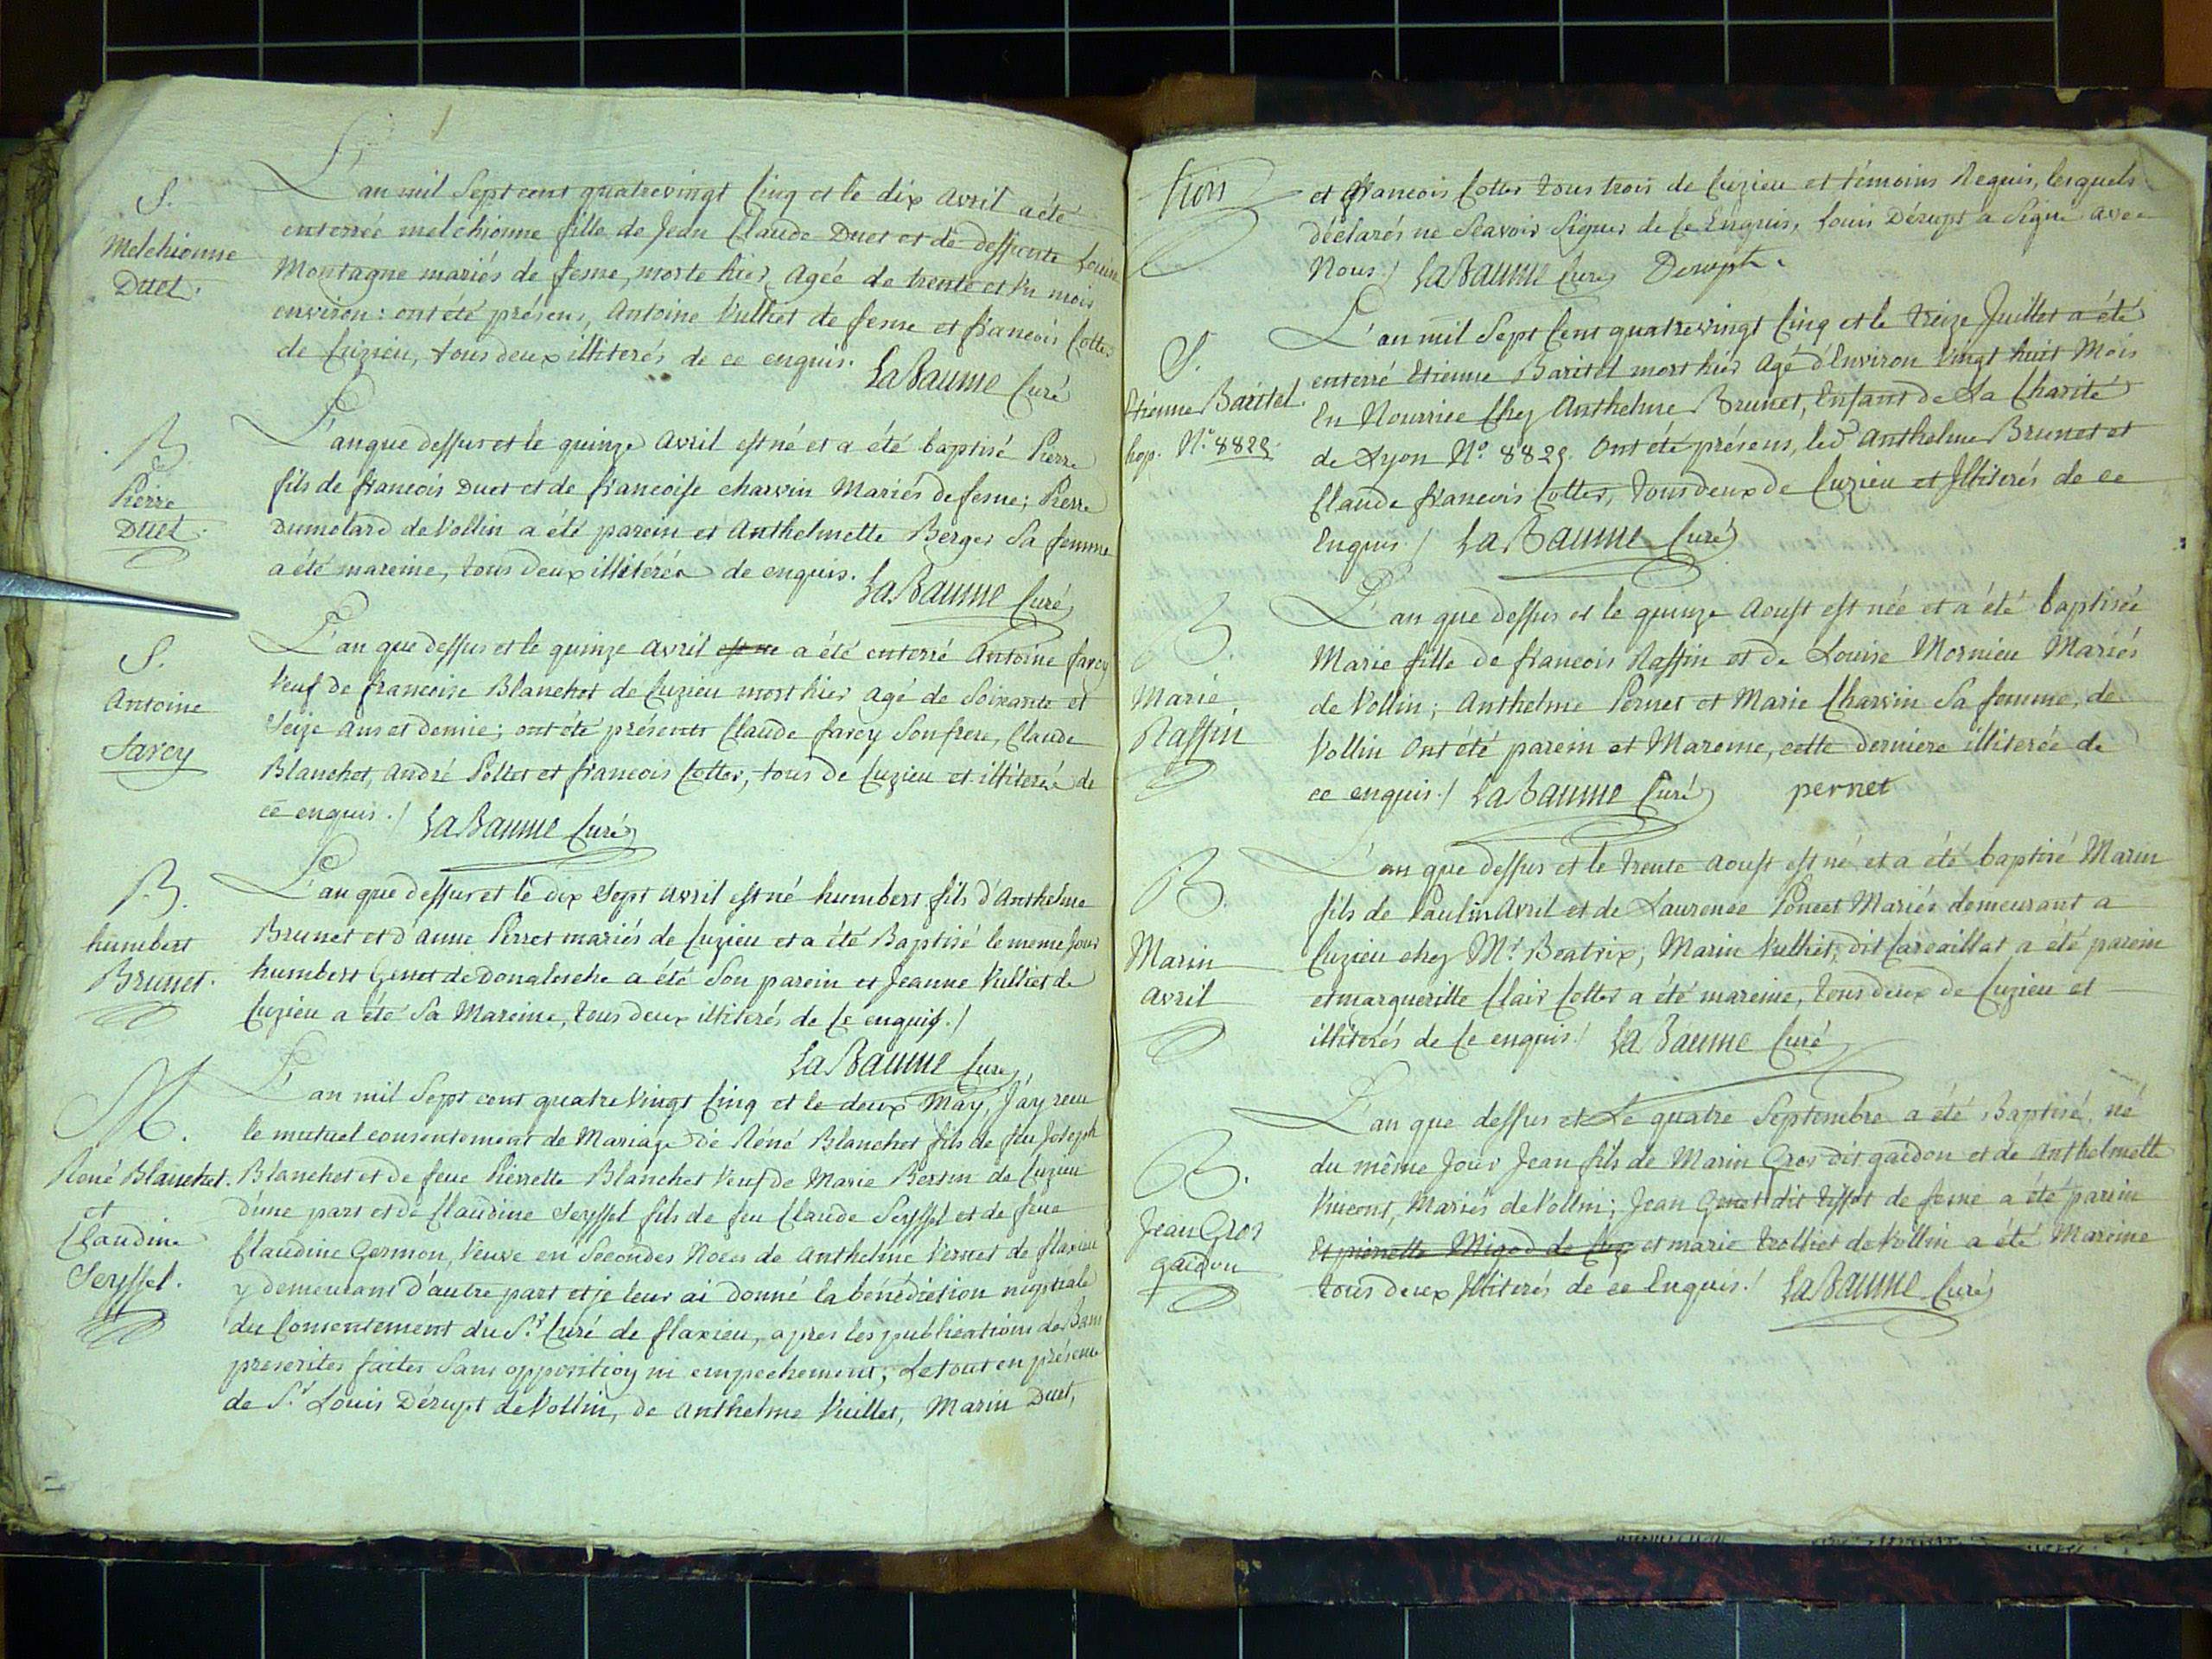 S.
Melchionne
Duet.
L'an mil Sept cent quatrevingt Cinq et le dix avril a été
enterrée melchionne fille de Jean Claude Duet et de deffunte Louise
Montagne mariés de fesne, morte hier agée de trente et un mois
environ: ont été présens, Antoine Vulliet de fesne et francois Cotter
de Cuzieu, tous deux illiterés de ce enquis.
LaBaume Curé
B.
Pierre
Duet.
L'an que dessus et le quinze avril est né et a été baptisé Pierre
fils de francois Duet et de francoise charvin Mariés de fesne; Pierre
Dumolard de Vollin a été parein et Anthelmette Berger Sa femme
a été mareine, tous deux illitérés de enquis.
LaBaume Curé
S.
Antoine
farcy
L'an que dessus et le quinze avril est né a été enterré Antoine farcy
Veuf de francoise Blanchet de Cuzieu mort hier agé de Soixante et
Seize ans et demie; ont été présents Claude farcy Son frere, Claude
Blanchet, André Pollet et francois Cotter, tous de Cuzieu et illiterés de
ce enquis./ LaBaume Curé
B.
humbert
Brunet.
L'an que dessus et le dix Sept avril est né humbert fils d'Anthelme
Brunet et d'anne Perret mariés de Cuzieu et a été Baptisé le meme Jour
humbert Genet de Donalesche a été Son parein et Jeanne Vulliet de
Cuzieu a été Sa Mareine, tous deux illiterés de Ce enquis./
LaBaume Curé
M.
René Blanchet.
et
Claudine
Seyssel.
L'an mil Sept cent quatre Vingt Cinq et le deux May, J'ay recu
le mutuel consentement de Mariage de Réné Blanchet fils de feu Joseph
Blanchet et de feue Pierrette Blanchet Veuf de Marie Bertin de Cuzieu
d'une part et de Claudine Seyssel fils de feu Claude Seyssel et de feue
Claudine Germon, Veuve en Secondes Noces de Anthelme Vernet de flaxieu
y demeurant d'autre part et je leur ai donné la bénédiction nuptiale
du Consentement du Sr. Curé de flaxieu, apres les publications de Bans
prescrites faites Sans opposition ni empechement; Le tout en présence
de Sr. Louis Dérupt de Vollin, de Anthelme Vuillet, Marin Duet,
et francois Cotter tous trois de Cuzieu et témoins Requis, lesquels
déclarés ne Scavoir Signer de Ce Enquis, Louis Dérupt a Signé avec
Nous./ LaBaume Curé Derupt.
S.
Etienne Baritel.
hop. No. 8829.
L'an mil Sept Cent quatrevingt Cinq et le treize Juillet a été
enterré Etienne Baritel mort hier Agé d'Environ Vingt huit Mois
En Nourrice Chez Anthelme Brunet, Enfant de La Charité
de Lyon No. 8829. Ont été présens, led. Anthelme Brunet et
Claude francois Cotter, tous deux de Cuzieu et Illiterés de ce
Enquis./ LaBaume Curé
B.
Marie
Raffin
L'an que dessus et le quinze Aoust est née et a été baptisée
Marie fille de francois Raffin et de Louise Mornieu Mariés
de Vollin; Anthelme Pernet et Marie Charvin Sa femme, de
Vollin Ont été parein et Mareine, cette derniere illiterée de
ce enquis./ LaBaume Curé pernet
B.
Marin
avril
L'an que dessus et le trente Aoust est né et a été baptisé Marin
fils de Paulin Avril et de Laurence Poncet Mariés demeurant a
Cuzieu chez Mr. Beatrix; Marin Vulliet, dit Carcaillat a été parein
et margueritte Clair Cotter a été mareine, tous deux de Cuzieu et
illiterés de Ce enquis./ LaBaume Curé
B.
Jean Gros
gaidon
L'an que dessus et Le quatre Septembre a été Baptisé, né
du même Jour Jean fils de Marin Gros dit gaidon et de Anthelmette
Vincent, Mariés de Vollin; Jean Genet dit tissot de fesne a été parein
Et pierrette Migod de Cuz et marie trolliet de Vollin a été Mareine
tous deux Illiterés de ce Enquis./ LaBaume Curé